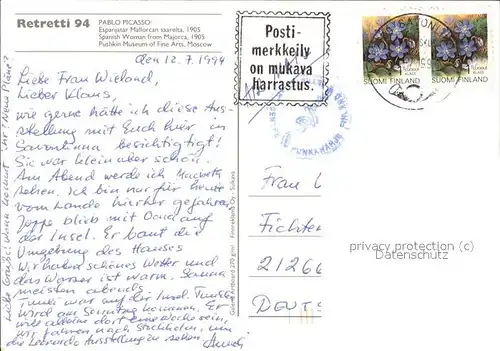 Retretti 94
PABLO PICASSO:
Espanjatar Mallorcan saarelta, 1905
Spanish Woman from Majorca, 1905
Pushkin Museum of Fine Arts, Moscow
Den 12.7.1994
Liebe Frau Wieland,
Lieber Klaus,
wie gerne hätte ich diese Aus-
stellung mit Euch hier in
Savonlinna besichtigt!
Sie war klein aber schön.
Am Abend werde ich Macbeth
sehen. Ich bin nur für heute
vom Lande hierher gefahren,
Joppe blieb mit auf
der Insel. Er baut die
Umgebung des Hauses
Wir haben schönes Wetter und
das Wasser ist warm. Sauna
meisten abends.
war auf der Insel.
wird am Sonntag kommen. Er
will alleine dort eine Woche sein,
wir fahren nach Stockholm, um
die Ausstellung zu sehen
Liebe Grüße!
Galerie Artboard 270 g/m²
Posti-
merkkeily
on mukava
harrastus.
SAVONLINNA
SUOMI FINLAND
SUOMI FINLAND
PUNKAHARJU FINLAND
Frau
Fichten
2126
DEUTS
privacy protection (c)
Datenschutz